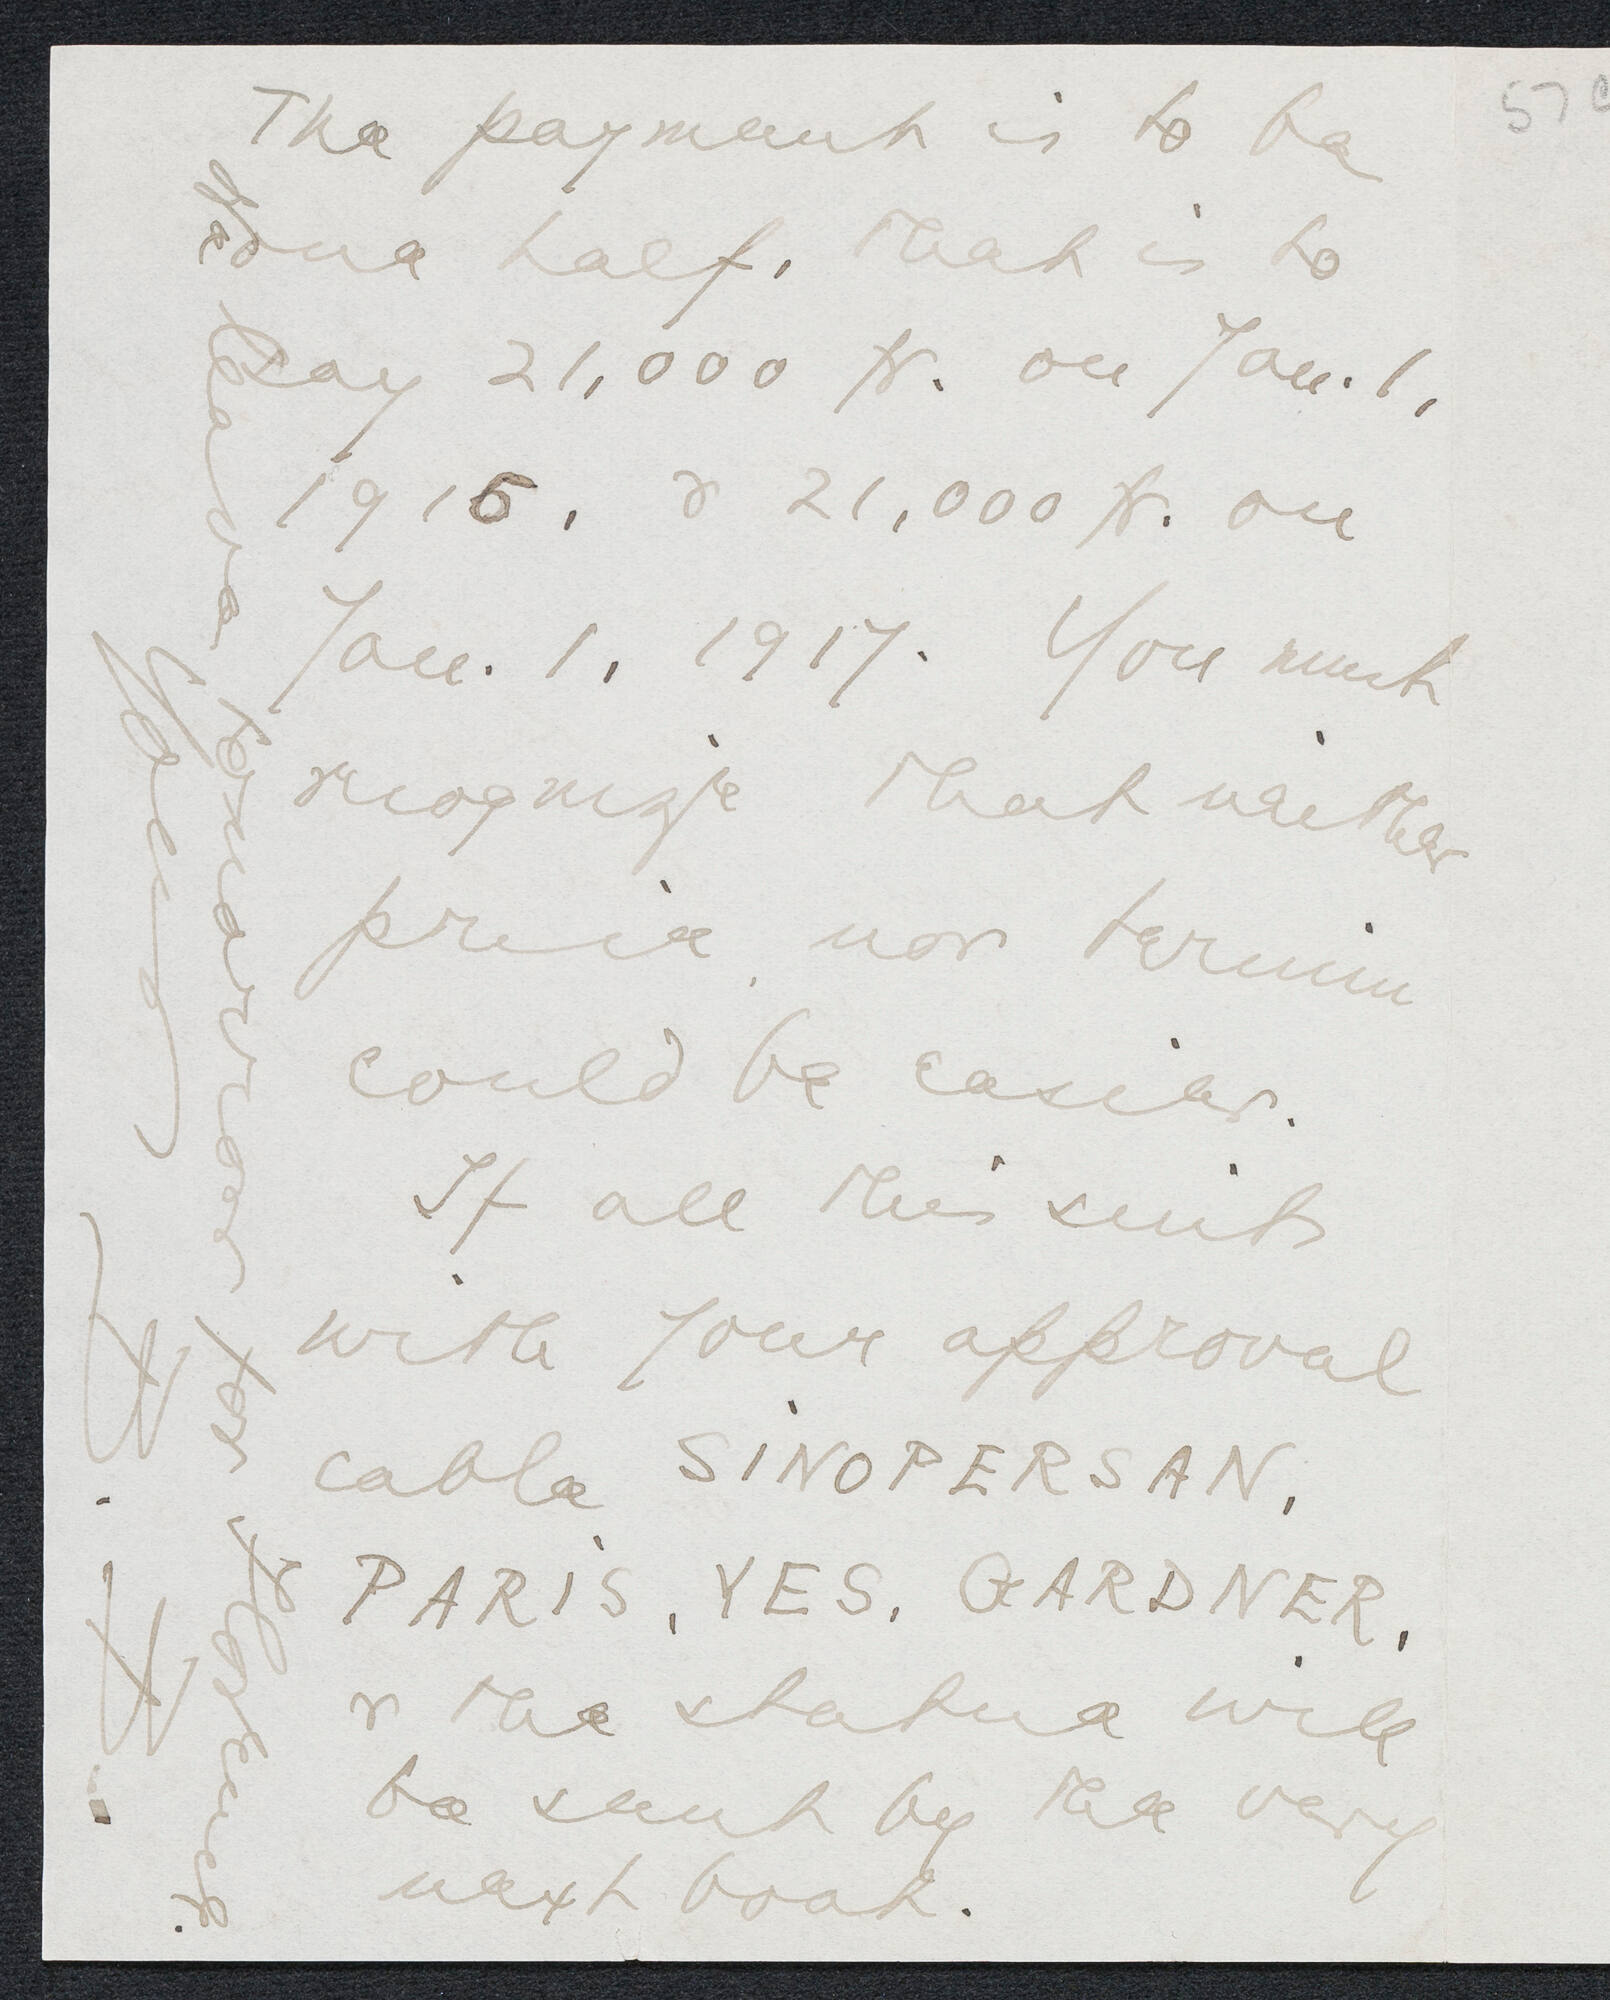 The payment is to be
one half, that is to
say 21,000 fr. on Jan. 1,
1916, & 21,000 fr. on
Jan. 1, 1917. You must
recognize that neither
price, nor terms
could be easier.
If all this suits
with your approval
cable SINOPERSAN,
PARIS, YES, GARDNER,
& the statue will
be sent by the very
next boat.
We leave tomorrow for Florence.
Yours
B. B.
57